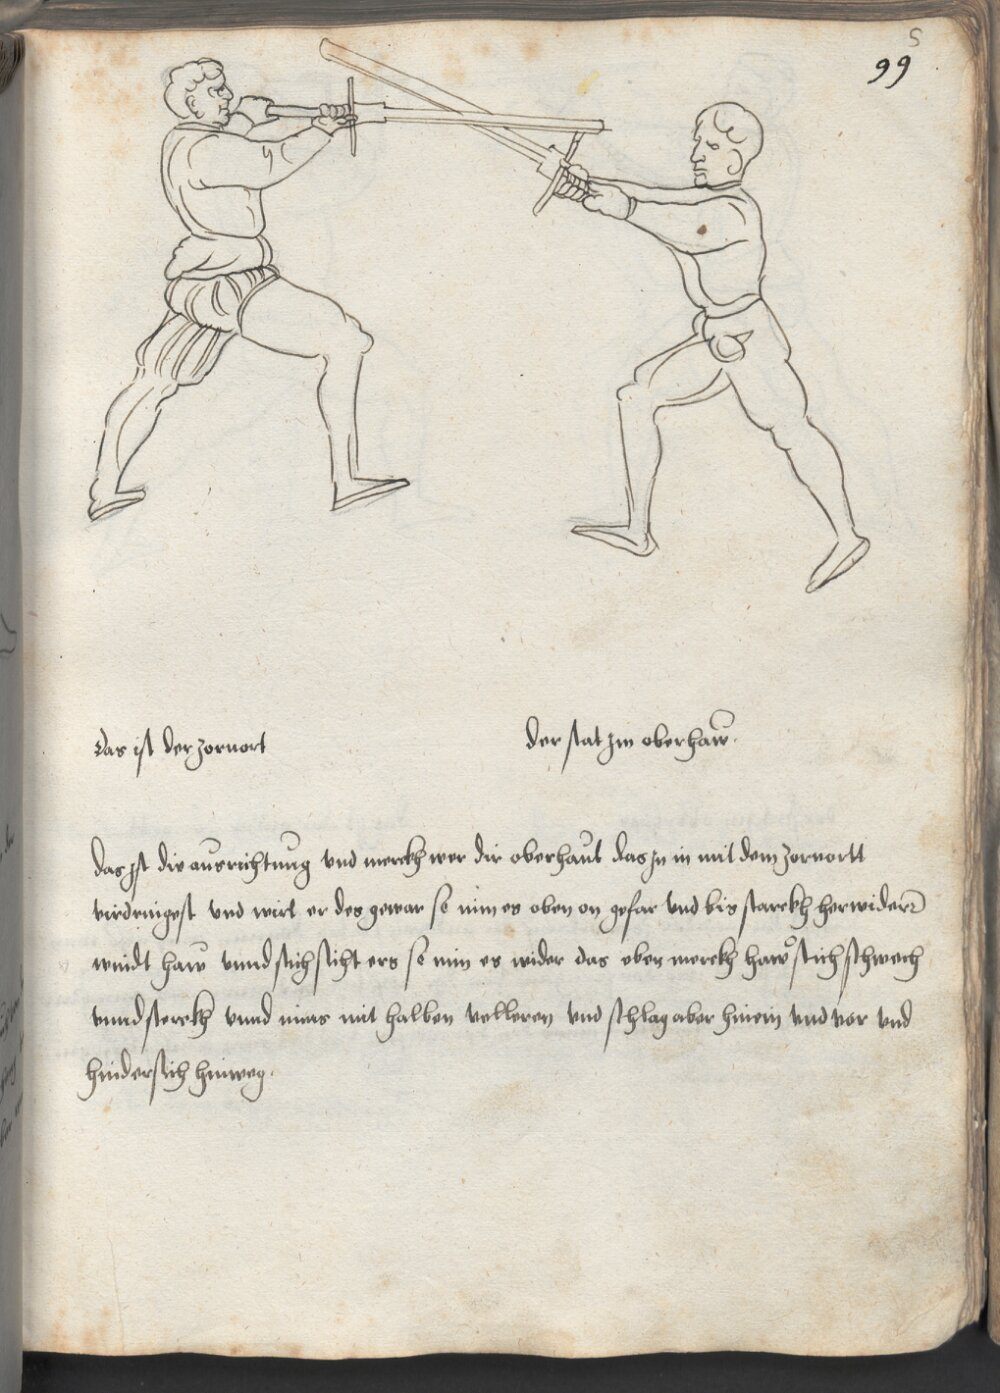 5
99
Das ist der zornort
der stat Im oberhaw.
das Ist die ausrichtung vnd merckh wer dir oberhaut das Ir in mit dem zornortt
virdringest vnd wirt er des gewar so nim es oben on gefar vnd bis starckh herwider
windt haw vnnd stich sticht ers so nim es wider das eben merckh haw stich schwech
vnnd sterckh vnnd nims mit halben velleren vnd schlag aber hinein vnd vor vnd
hinderstich hinweg.